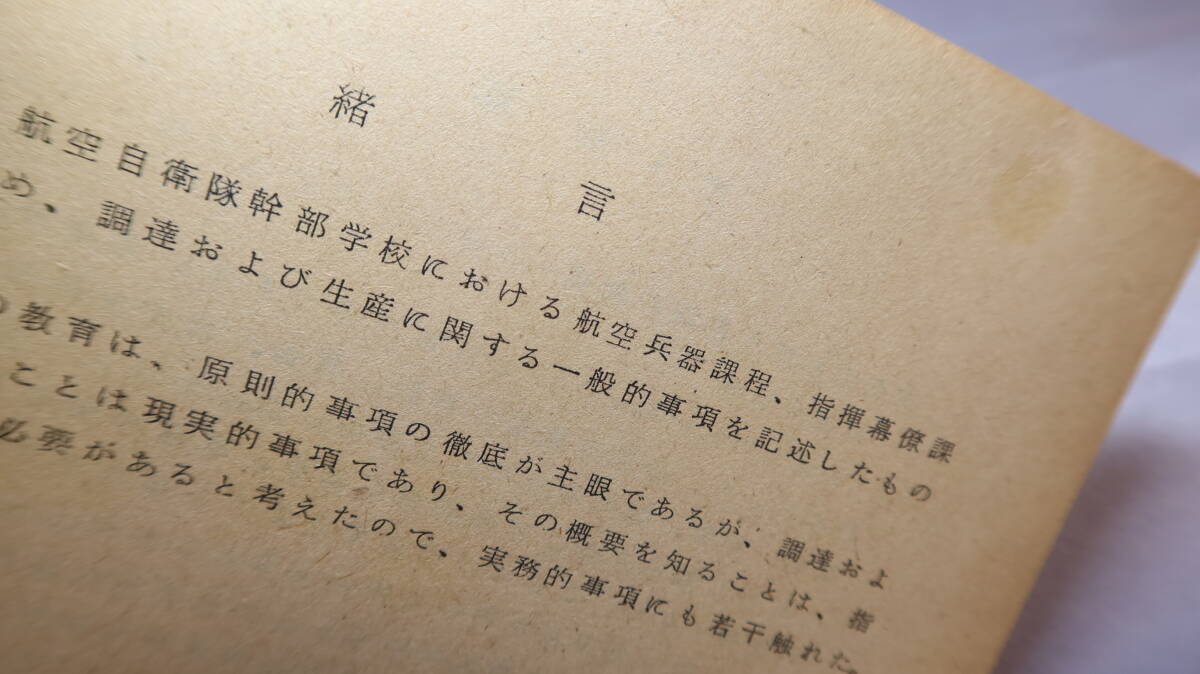 緒言
航空自衛隊幹部学校における航空兵器課程、指揮幕僚課
め、調達および生産に関する一般的事項を記述したもの
教育は、原則的事項の徹底が主眼であるが、調達およ
ことは現実的事項であり、その概要を知ることは、指
必要があると考えたので、実務的事項にも若干触れた。